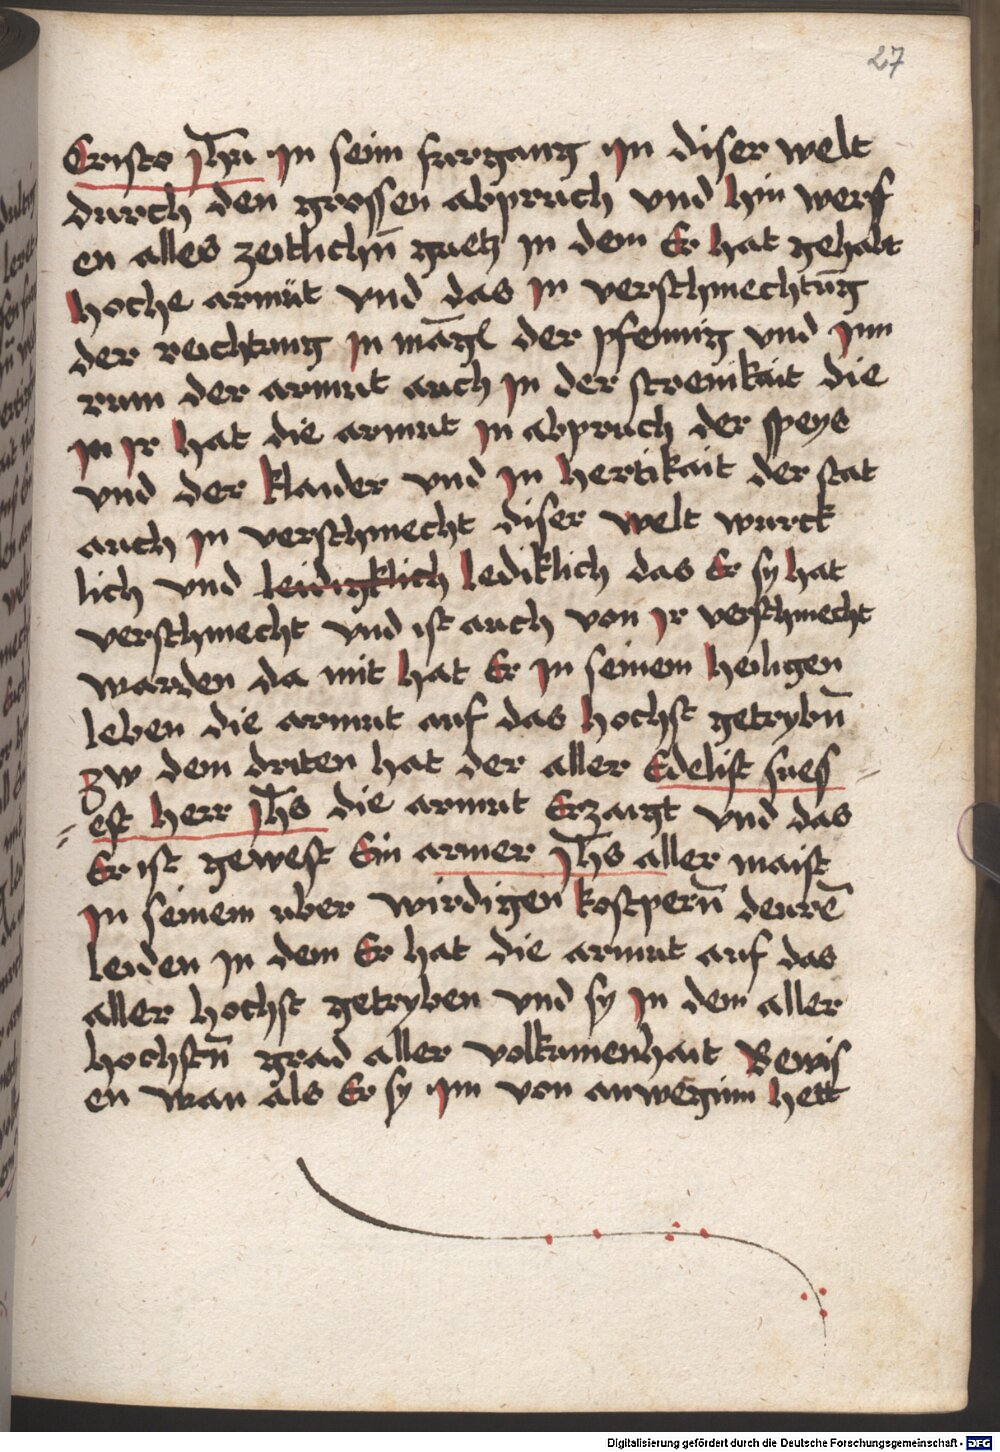 27
Cristo Jhu in seim furgang in diser welt
durch den grossen abpruch vnd hin werf
en alles zeitlichn̄ guetz in dem Er hat gehabt
hoche armüt vnd das in verschmechtūg
der reichtung in māgl der pfennig vnd
der armut auch in der strenikait die
in ir hat die armut in abpruch der speys
vnd der klaider vnd in hertikait der stat
auch in verschmecht diser welt wurck
lich vnd leidigklich lediklich das Er sy hat
verschmecht vnd ist auch von ir verschmecht
warden da mit hat Er in seinem heiligen
leben die armut auf das hochst getrybn̄
zw dem driten hat der aller Edelist sues
est herr Jhs die armut Erzaigt vnd das
Er ist gewest Ein armer Jhs aller maist
in seinem uber wirdigen kostpern̄ deurē
leiden in dem Er hat die armut auf das
aller hochst getryben vnd sy in dem aller
hochstn̄ grad aller volkumenhait Bewis
en wan als Er sy im von anweginn hett
Digitalisierung gefördert durch die Deutsche Forschungsgemeinschaft - DFG